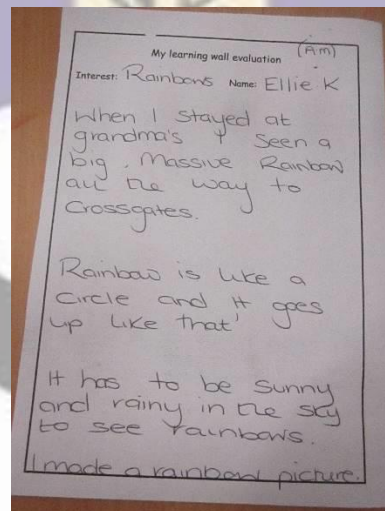 (Am)
My learning wall evaluation
Interest: Rainbows Name: Ellie K
When I stayed at
grandma's I seen a
big. Massive Rainbow
all the way to
Crossgates.
Rainbow is like a
circle and it goes
up like that'
It has to be sunny
and rainy in the sky
to see rainbows.
I made a rainbow picture.